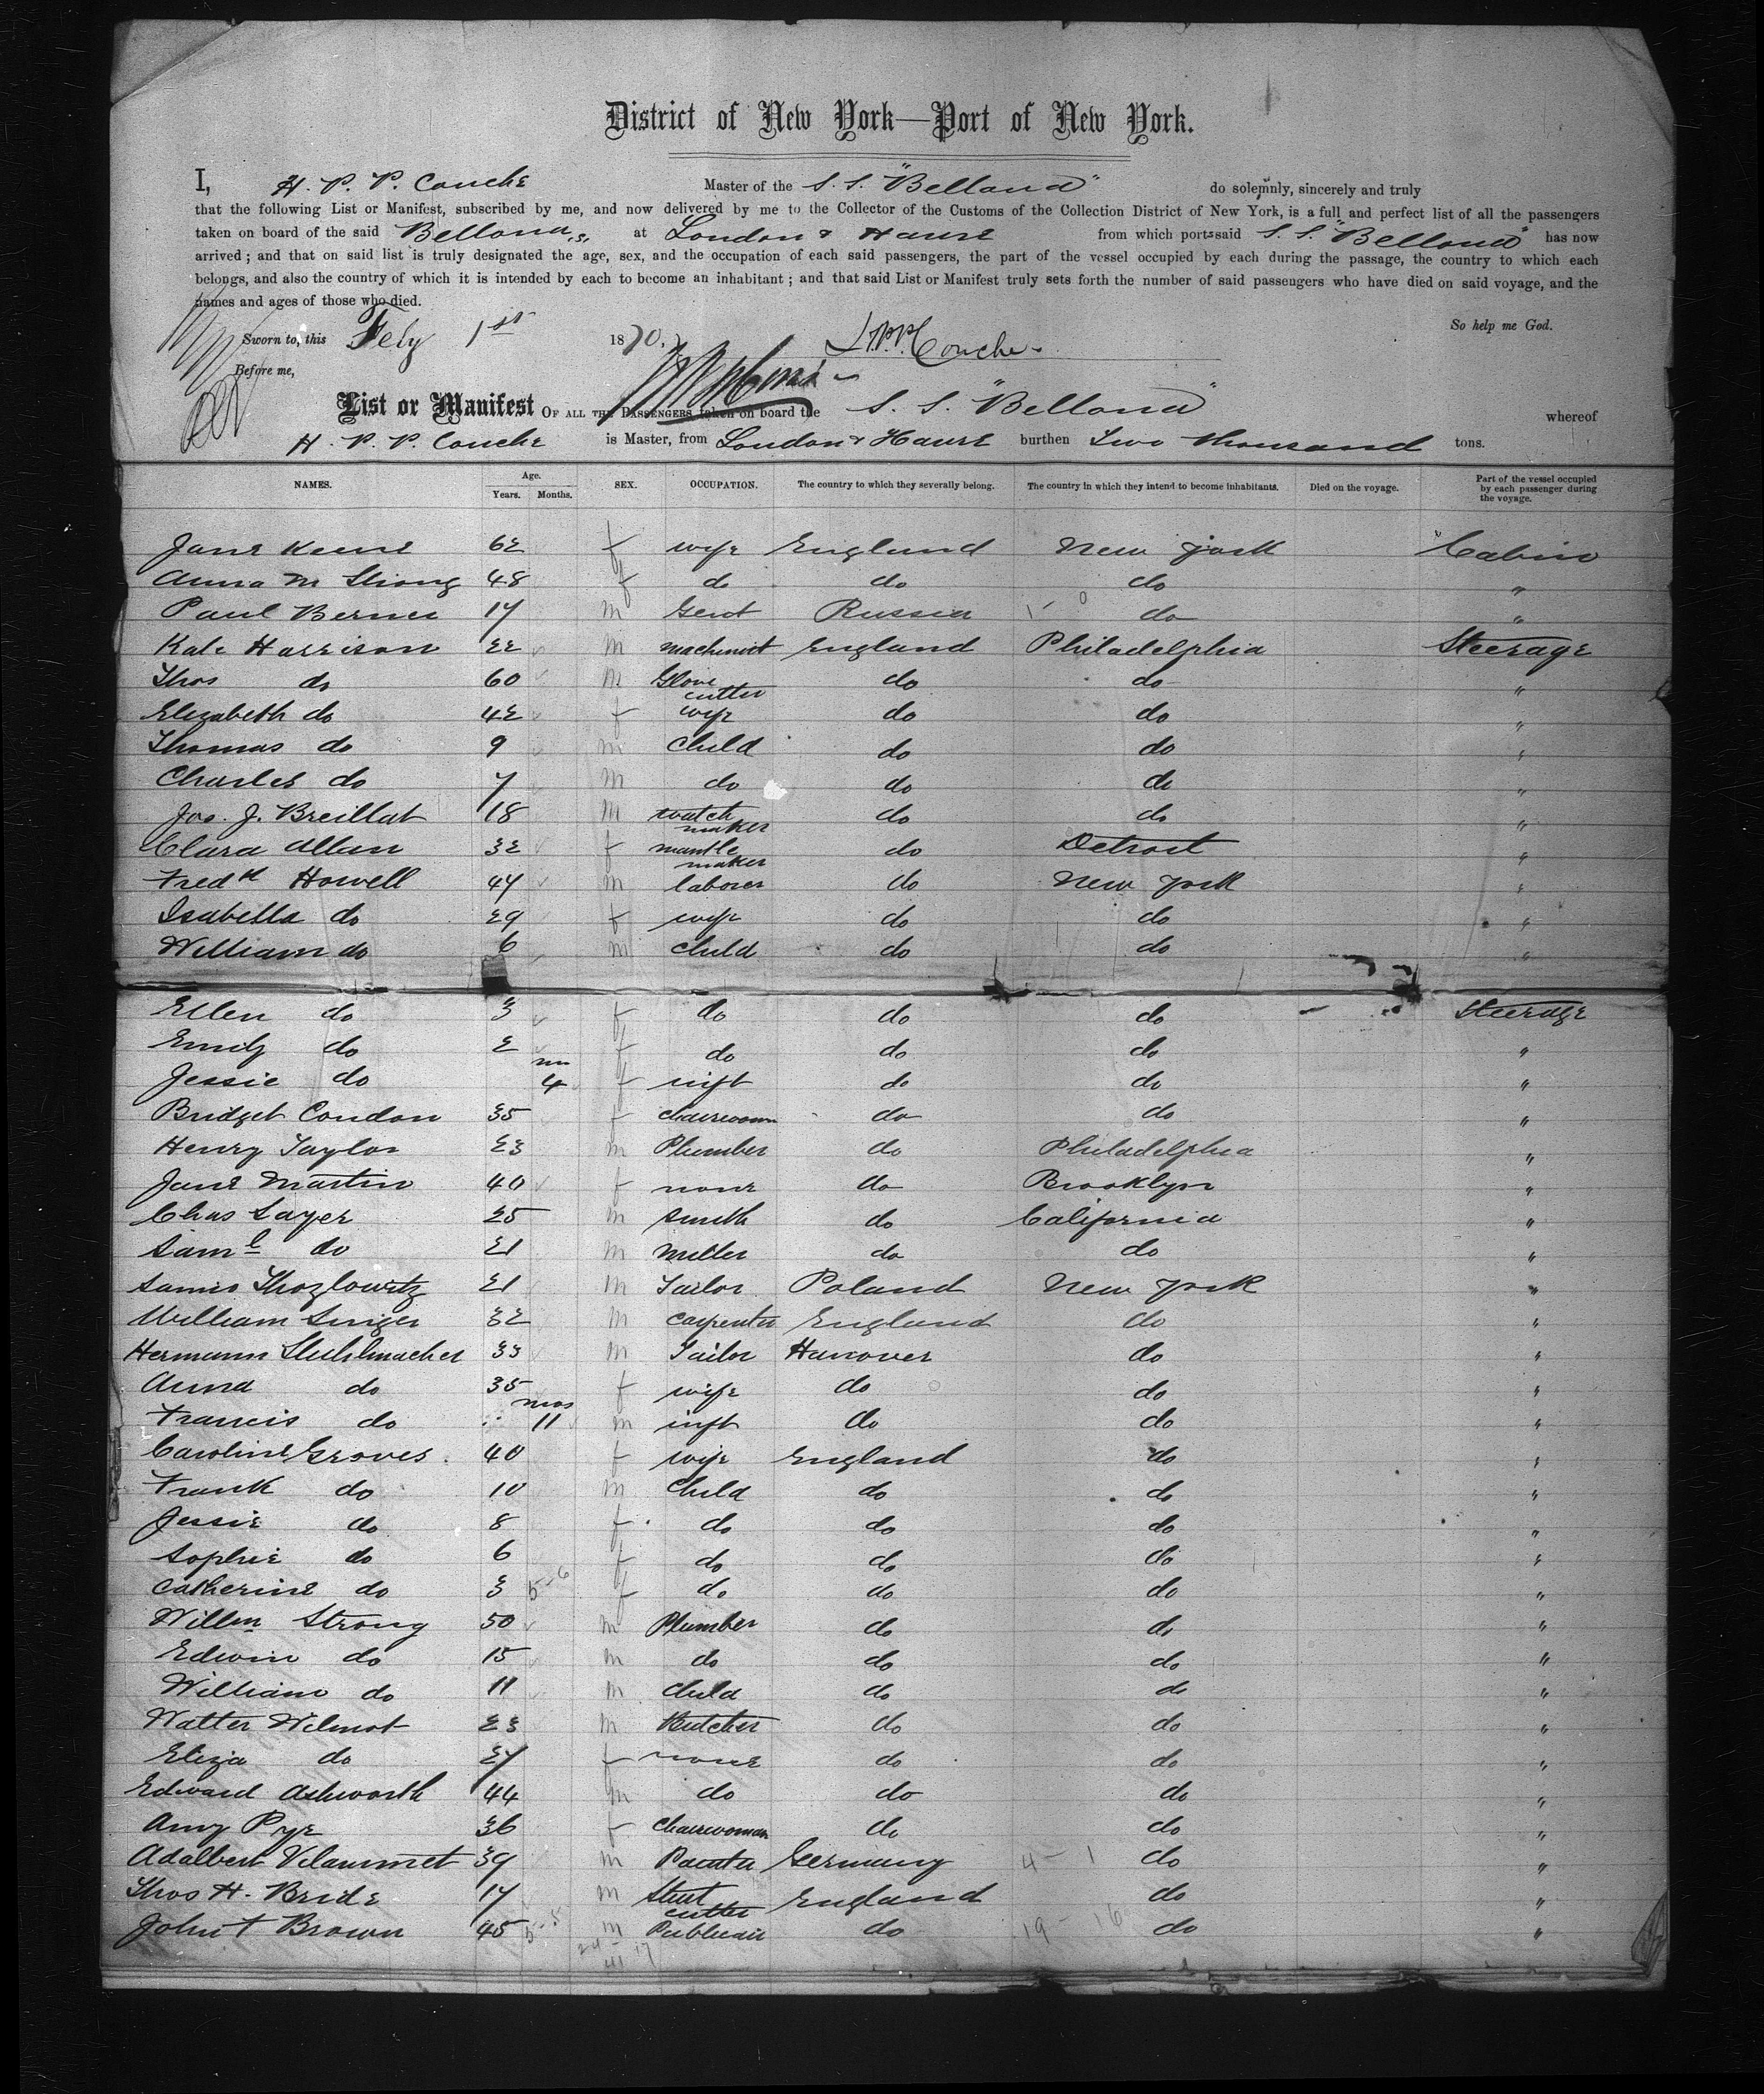 District of New York—Port of New York.
I, H. P. P. Couche Master of the S. S. "Bellona" do solemnly, sincerely and truly
that the following List or Manifest, subscribed by me, and now delivered by me to the Collector of the Customs of the Collection District of New York, is a full and perfect list of all the passengers
taken on board of the said Bellona at London & Havre from which ports said S. S. "Bellona" has now
arrived; and that on said list is truly designated the age, sex, and the occupation of each said passengers, the part of the vessel occupied by each during the passage, the country to which each
belongs, and also the country of which it is intended by each to become an inhabitant; and that said List or Manifest truly sets forth the number of said passengers who have died on said voyage, and the
names and ages of those who died.
So help me God.
Sworn to, this Feby 1st 1870, H.P.P. Couche
Before me,
List or Manifest OF ALL THE PASSENGERS taken on board the S. S. "Bellona" whereof
H. P. P. Couche is Master, from London & Havre burthen Two thousand tons.
NAMES. Age. Years. Months. SEX. OCCUPATION. The country to which they severally belong. The country in which they intend to become inhabitants. Died on the voyage. Part of the vessel occupied by each passenger during the voyage.
Jane Keene 62 f wife England New york Cabin
Anna M Strong 48 f do do do "
Paul Bernes 17 m Gent Russia do "
Kate Harrison 22 m machinist England Philadelphia Steerage
Thos do 60 m Glove cutter do do "
Elizabeth do 42 f wife do do "
Thomas do 9 m Child do do "
Charles do 7 m do do do "
Jno. J. Breillat 18 m watch maker do do "
Clara Allan 32 f mantle maker do Detroit "
Fredk Howell 47 m laborer do New york "
Isabella do 29 f wife do do "
William do 6 m child do do "
Ellen do 3 f do do do Steerage
Emily do 2 f do do do "
Jessie do m 4 f inft do do "
Bridget Condon 35 f chairwoman do do "
Henry Taylor 23 m Plumber do Philadelphia "
Jane Martin 40 f none do Brooklyn "
Chas Sayer 25 m smith do California "
Saml do 21 m Miller do do "
Thozlowitz 21 m Tailor Poland New york "
William Singer 32 m carpenter England do "
Hermann Stuhlmacher 33 m Tailor Hanover do "
Anna do 35 f wife do do "
Francis do mos 11 m inft do do "
Caroline Groves 40 f wife England do "
Frank do 10 m Child do do "
Jessie do 8 f do do do "
Sophie do 6 f do do do "
Catherine do 3 f do do do "
Willm Strong 50 m Plumber do do "
Edwin do 15 m do do do "
William do 11 m child do do "
Walter Wilmot 23 m Butcher do do "
Eliza do 27 f none do do "
Edward Ashworth 44 m do do do "
Amy Pye 36 f Chairwoman do do "
Adalbert 39 m Painter Germany 4 - 1 do "
Thos H. Bride 17 m cutter England do "
John T Brown 45 m Publican do 19 - 16 do "